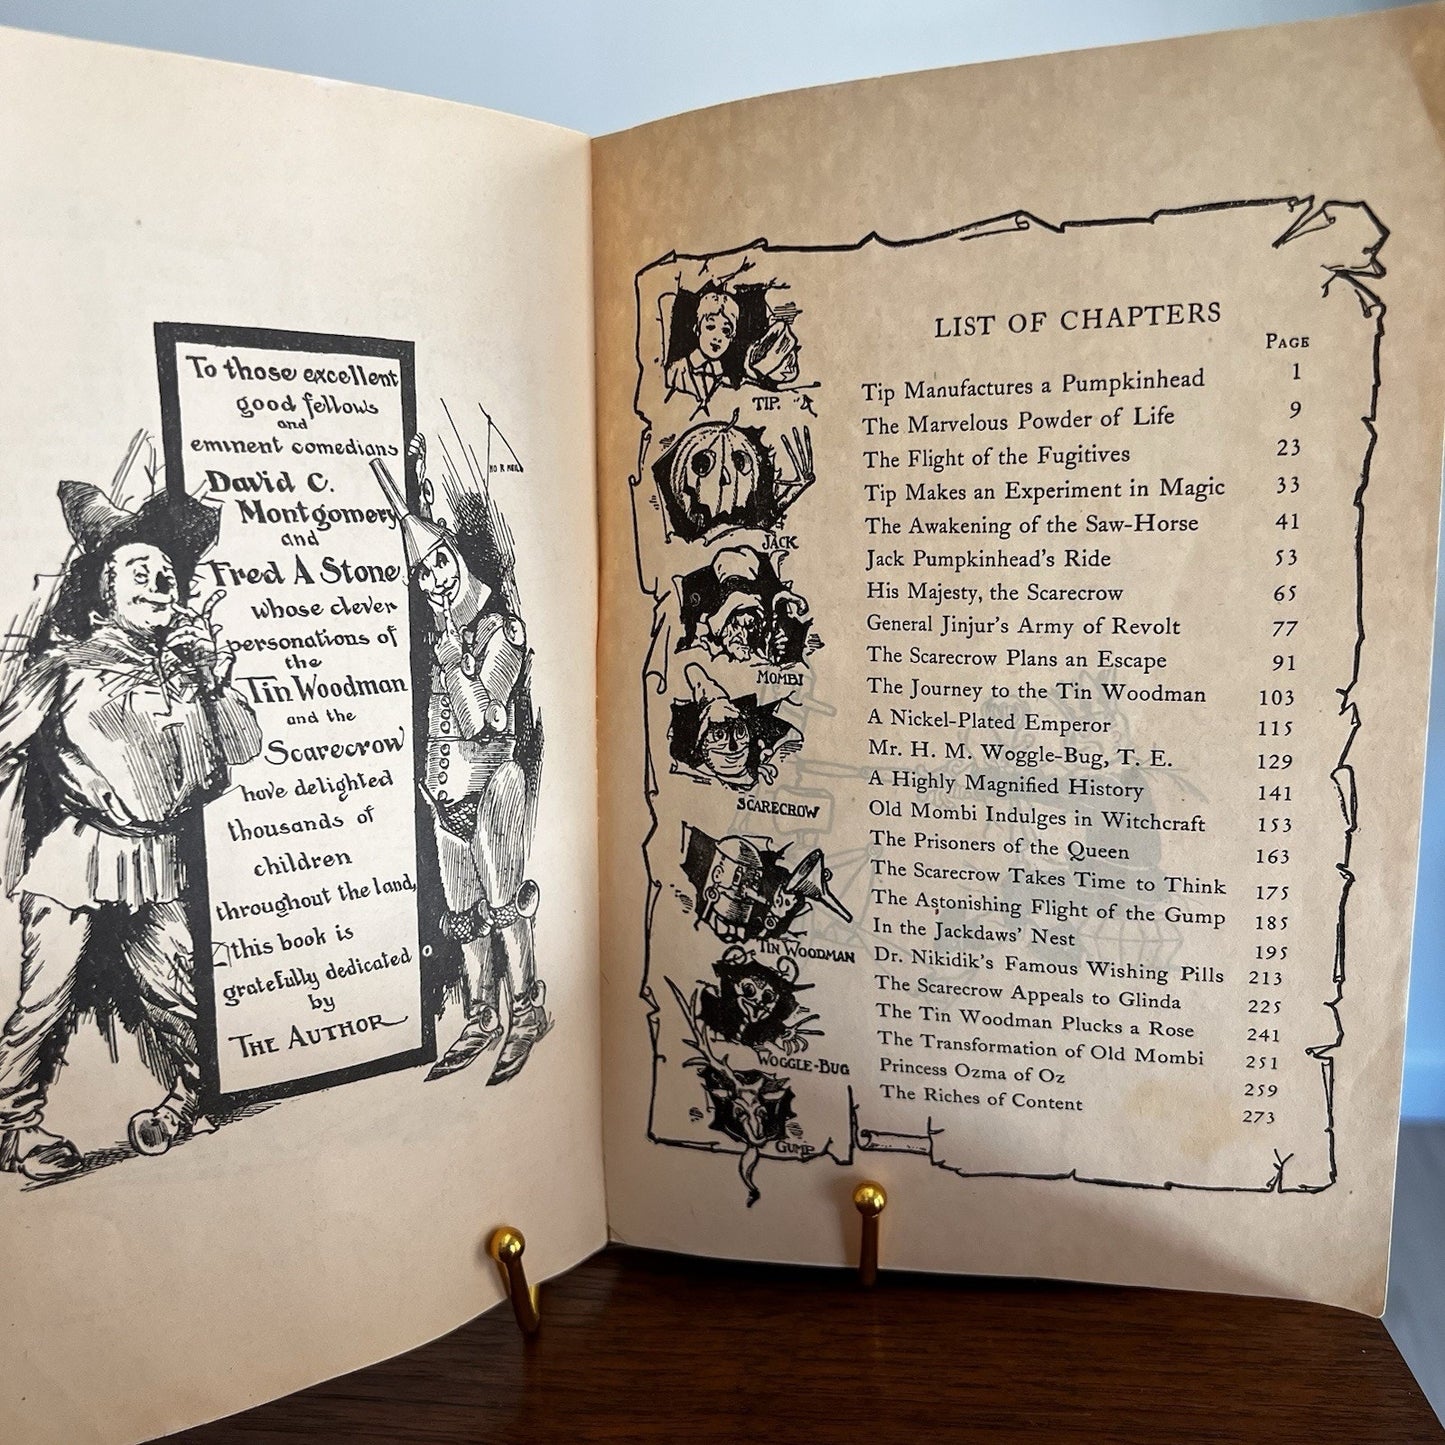 To those excellent
good fellows
and
eminent comedians
David C.
Montgomery
and
Fred A Stone
whose clever
personations of
the
Tin Woodman
and the
Scarecrow
have delighted
thousands of
children
throughout the land,
this book is
gratefully dedicated
by
THE AUTHOR
LIST OF CHAPTERS
PAGE
Tip Manufactures a Pumpkinhead 1
The Marvelous Powder of Life 9
The Flight of the Fugitives 23
Tip Makes an Experiment in Magic 33
The Awakening of the Saw-Horse 41
Jack Pumpkinhead's Ride 53
His Majesty, the Scarecrow 65
General Jinjur's Army of Revolt 77
The Scarecrow Plans an Escape 91
The Journey to the Tin Woodman 103
A Nickel-Plated Emperor 115
Mr. H. M. Woggle-Bug, T. E. 129
A Highly Magnified History 141
Old Mombi Indulges in Witchcraft 153
The Prisoners of the Queen 163
The Scarecrow Takes Time to Think 175
The Astonishing Flight of the Gump 185
In the Jackdaws' Nest 195
Dr. Nikidik's Famous Wishing Pills 213
The Scarecrow Appeals to Glinda 225
The Tin Woodman Plucks a Rose 241
The Transformation of Old Mombi 251
Princess Ozma of Oz 259
The Riches of Content 273
TIP.
JACK
MOMBI
SCARECROW
TIN WOODMAN
WOGGLE-BUG
GUMP